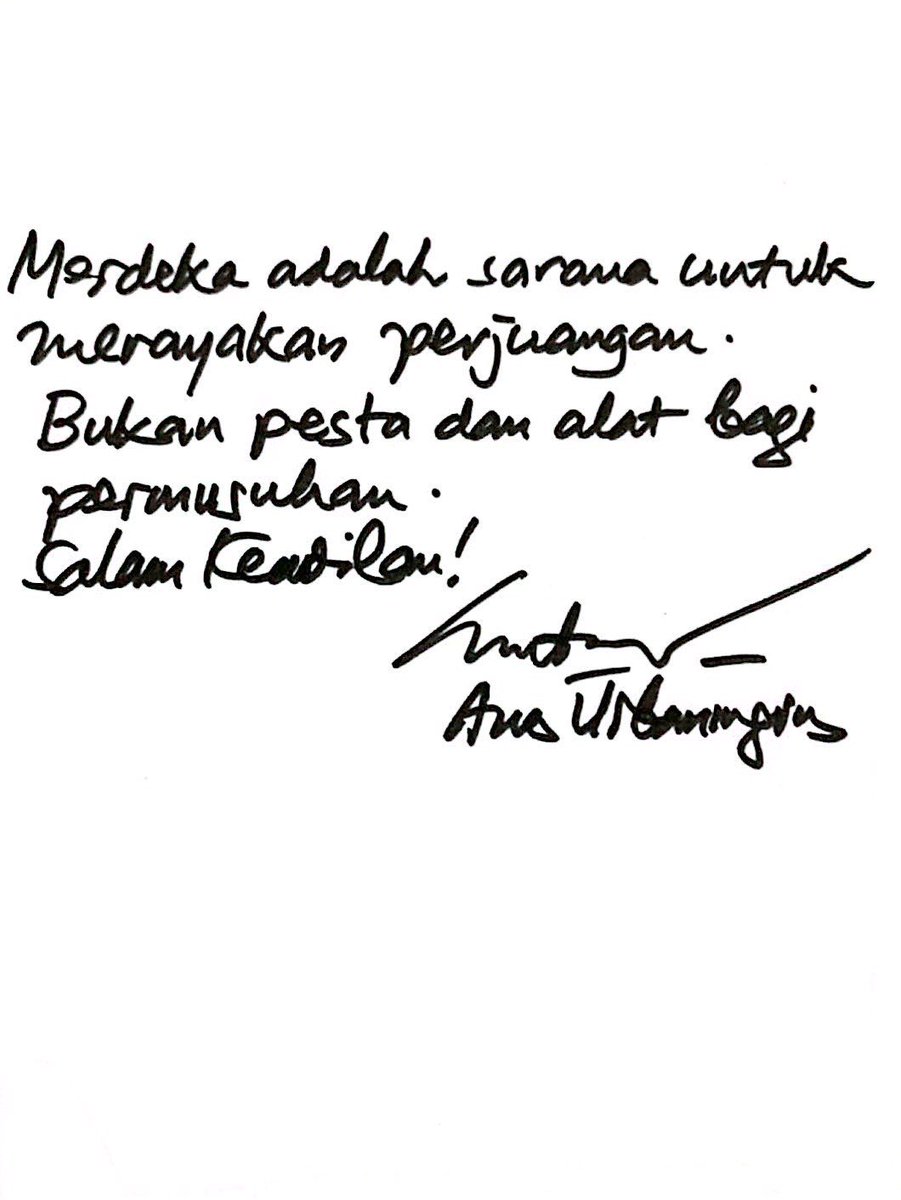 Merdeka adalah sarana untuk
merayakan perjuangan.
Bukan pesta dan alat bagi
permusuhan.
Salam Keadilan!
Anas Urbaningrum